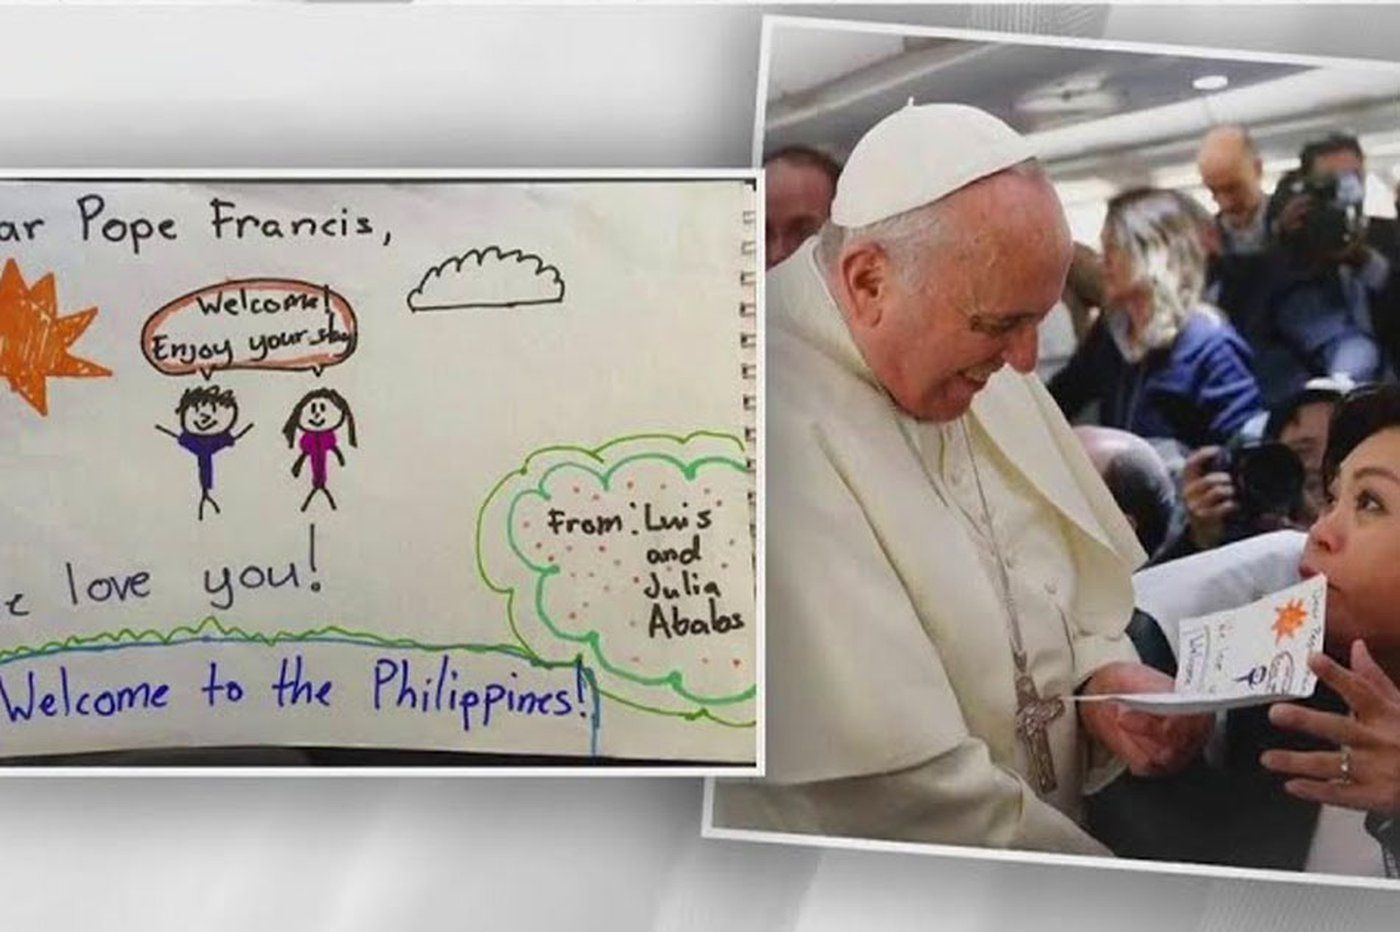 ar Pope Francis,
Welcome!
Enjoy your stay
From: Luis
and
Julia
Abalos
e love you!
Welcome to the Philippines!